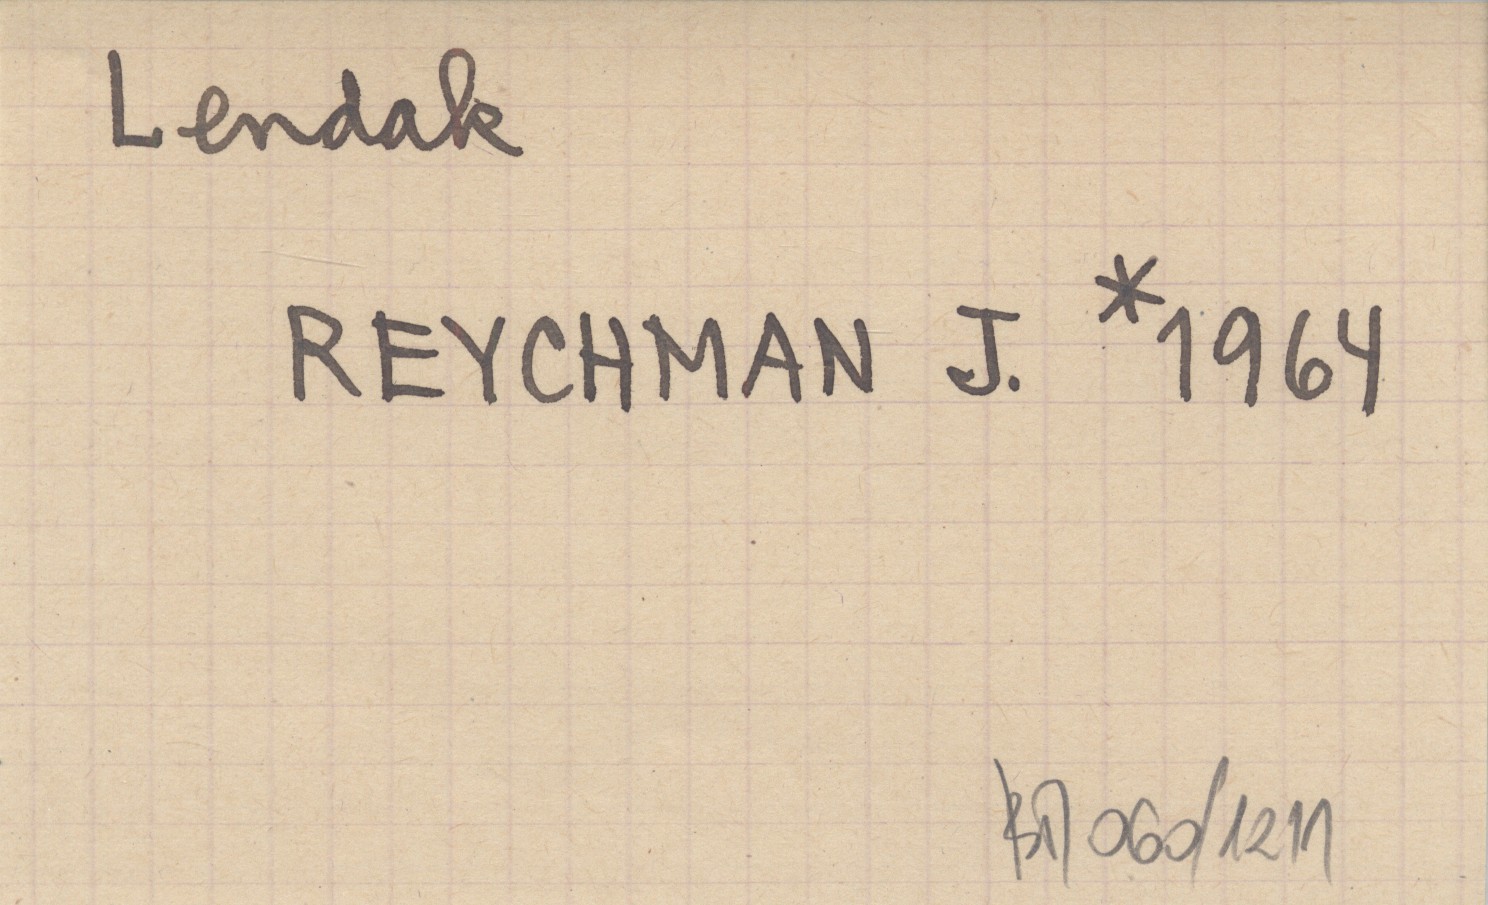 Lendak
REYCHMAN J. *1964
060/1211